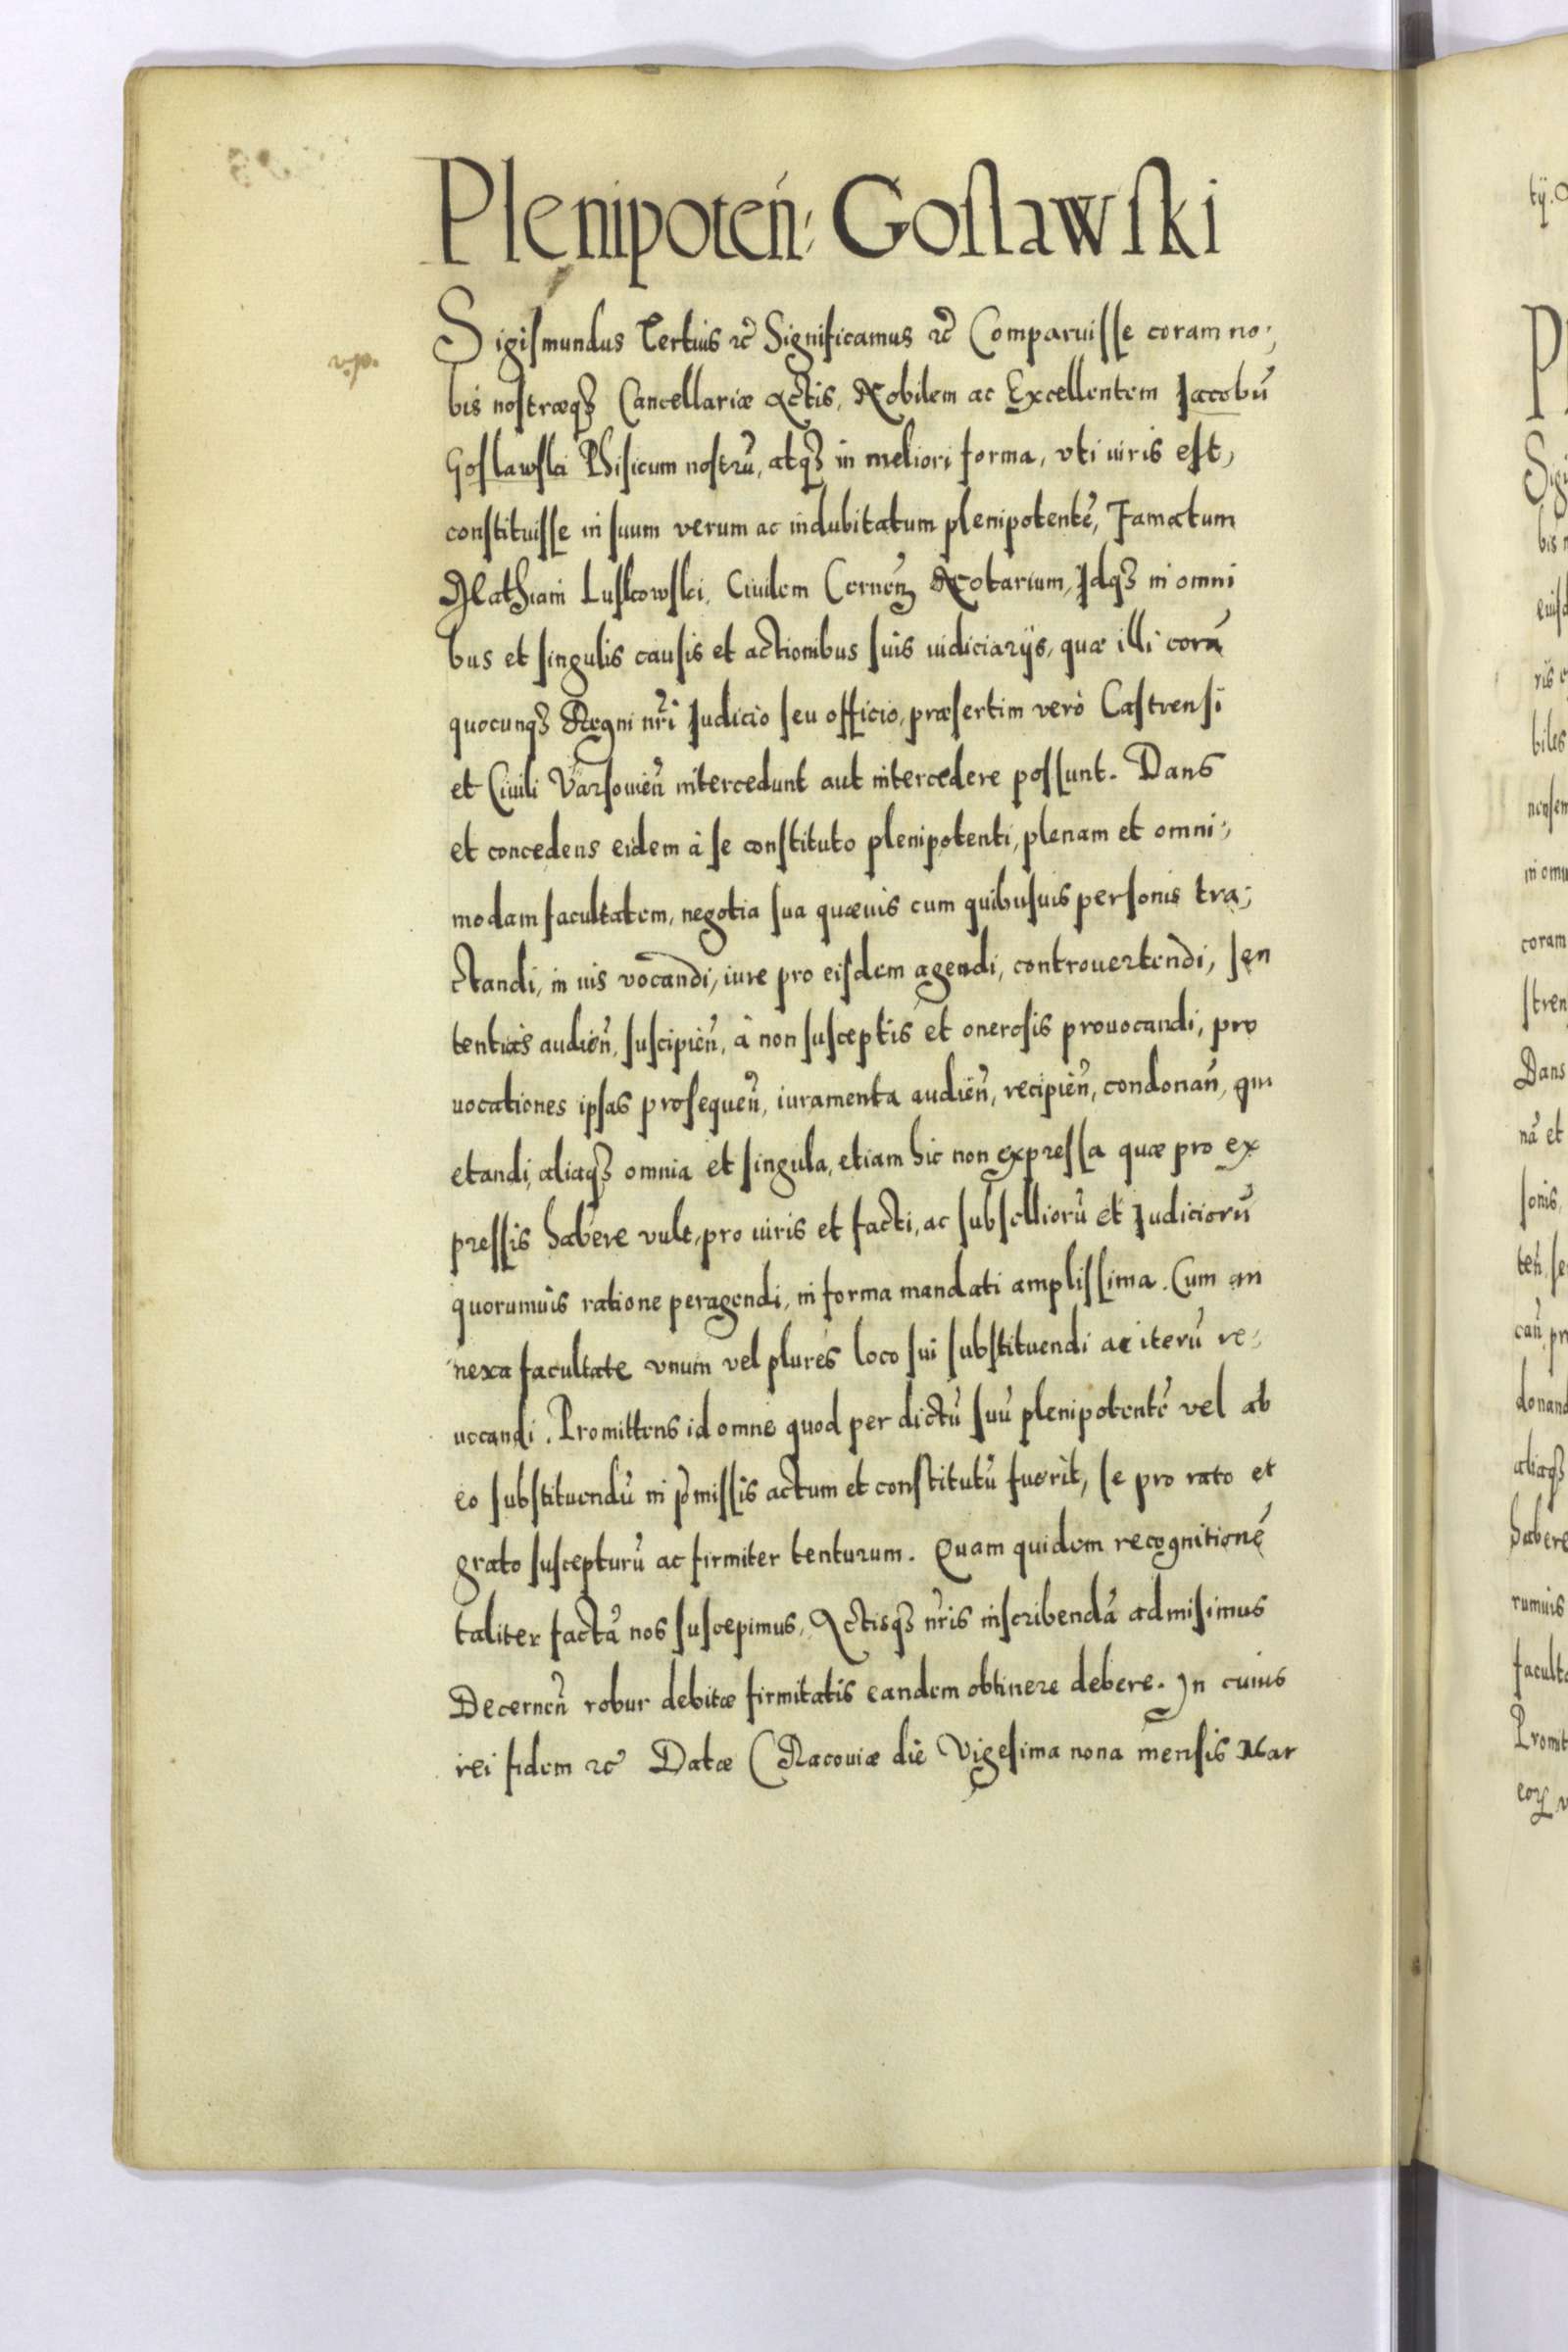 Plenipoteń: Goslawski
v.p.
Sigismundus Tertius ꝛc̃ Significamus ꝛc̃ Comparuisse coram no:
bis nostræqꝫ Cancellariæ Actis, Nobilem ac Excellentem Jacobũ
Goslawski Phisicum nostrũ, atqꝫ in meliori forma, vti iuris est,
constituisse in suum verum ac indubitatum plenipotentẽ, Famatum
Mathiam Luskowski, Ciuilem Cernen̄ Notarium, Idqꝫ in omni
bus et singulis causis et actionibus suis iudiciarijs, quæ illi corã
quocunqꝫ Regni nr̃i Judicio seu officio, præsertim verò Castrensi
et Ciuili Varsouień intercedunt aut intercedere possunt. Dans
et concedens eidem à se constituto plenipotenti, plenam et omni:
modam facultatem, negotia sua quæuis cum quibusuis personis tra:
ctandi, in ius vocandi, iure pro eisdem agendi, controuertendi, sen
tentias audień, suscipień, à non susceptis et onerosis prouocandi, pro
uocationes ipsas prosequeń, iuramenta audień, recipień, condonań, qui
etandi, aliaqꝫ omnia et singula, etiam hic non expressa quæ pro ex
pressis habere vult, pro iuris et facti, ac subselliorũ et Judiciorũ
quorumuis ratione peragendi, in forma mandati amplissima. Cum an
nexa facultate vnum vel plures loco sui substituendi ac iterũ re:
uocandi. Promittens id omne quod per dictũ suũ plenipotentẽ vel ab
eo substituendũ in p̃missis actum et constitutũ fuerit, se pro rato et
grato suscepturũ ac firmiter tenturum. Quam quidem recognitionẽ
taliter factã nos suscepimus, Actisqꝫ nr̃is inscribendã admisimus
Decerneń robur debitæ firmitatis eandem obtinere debere. In cuius
rei fidem ꝛc̃ Datæ Cracouiæ die Vigesima nona mensis Mar